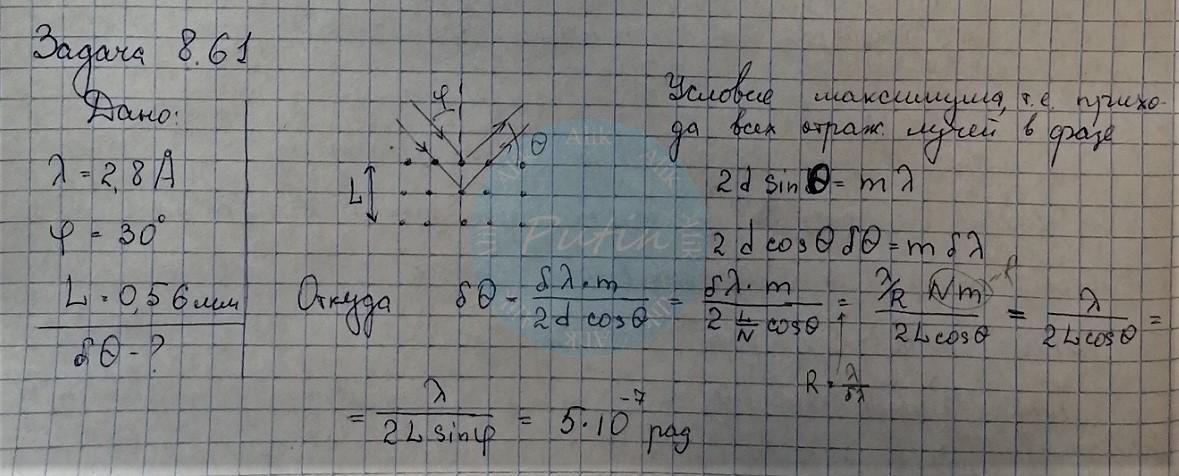 Задача 8.61
Дано:
λ = 2,8 Å
φ = 30°
L = 0,56 мм
δθ - ?
φ
θ
L
Условие максимума, т.е. прихо-
да всех отраж. лучей в фазе
2d sinθ = mλ
2d cosθ δθ = m δλ
Откуда δθ - δλ·m / 2d cosθ = δλ·m / 2 L/N cosθ = λ/R Nm / 2L cosθ = λ / 2L cosθ =
R = λ/δλ
= λ / 2L sinφ = 5·10^-7 рад
Putin